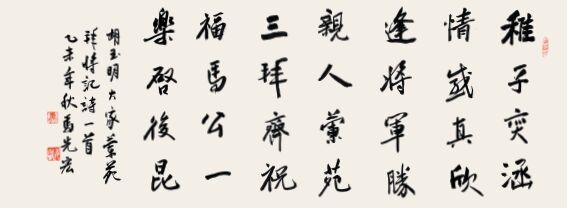 稚子突涵
情感真欣
逢將軍勝
親人蘭苑
三拜齊祝
福馬公一
樂啓後昆
胡玉明大家蘭苑
拜將記詩一首
乙未年秋馬先宏